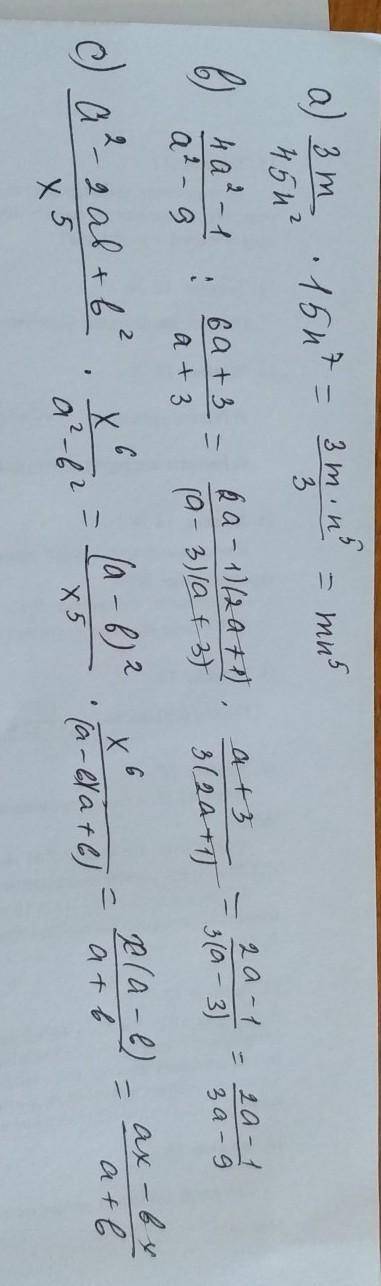 a) 3m/45n² · 15n⁷ = 3m·n⁵/3 = mn⁵
b) 4a² - 1/a² - 9 : 6a + 3/a + 3 = (2a - 1)(2a + 1)/(a - 3)(a + 3) · a + 3/3(2a + 1) = 2a - 1/3(a - 3) = 2a - 1/3a - 9
c) a² - 2ab + b²/x⁵ · x⁶/a² - b² = (a - b)²/x⁵ · x⁶/(a - b)(a + b) = x(a - b)/a + b = ax - bx/a + b